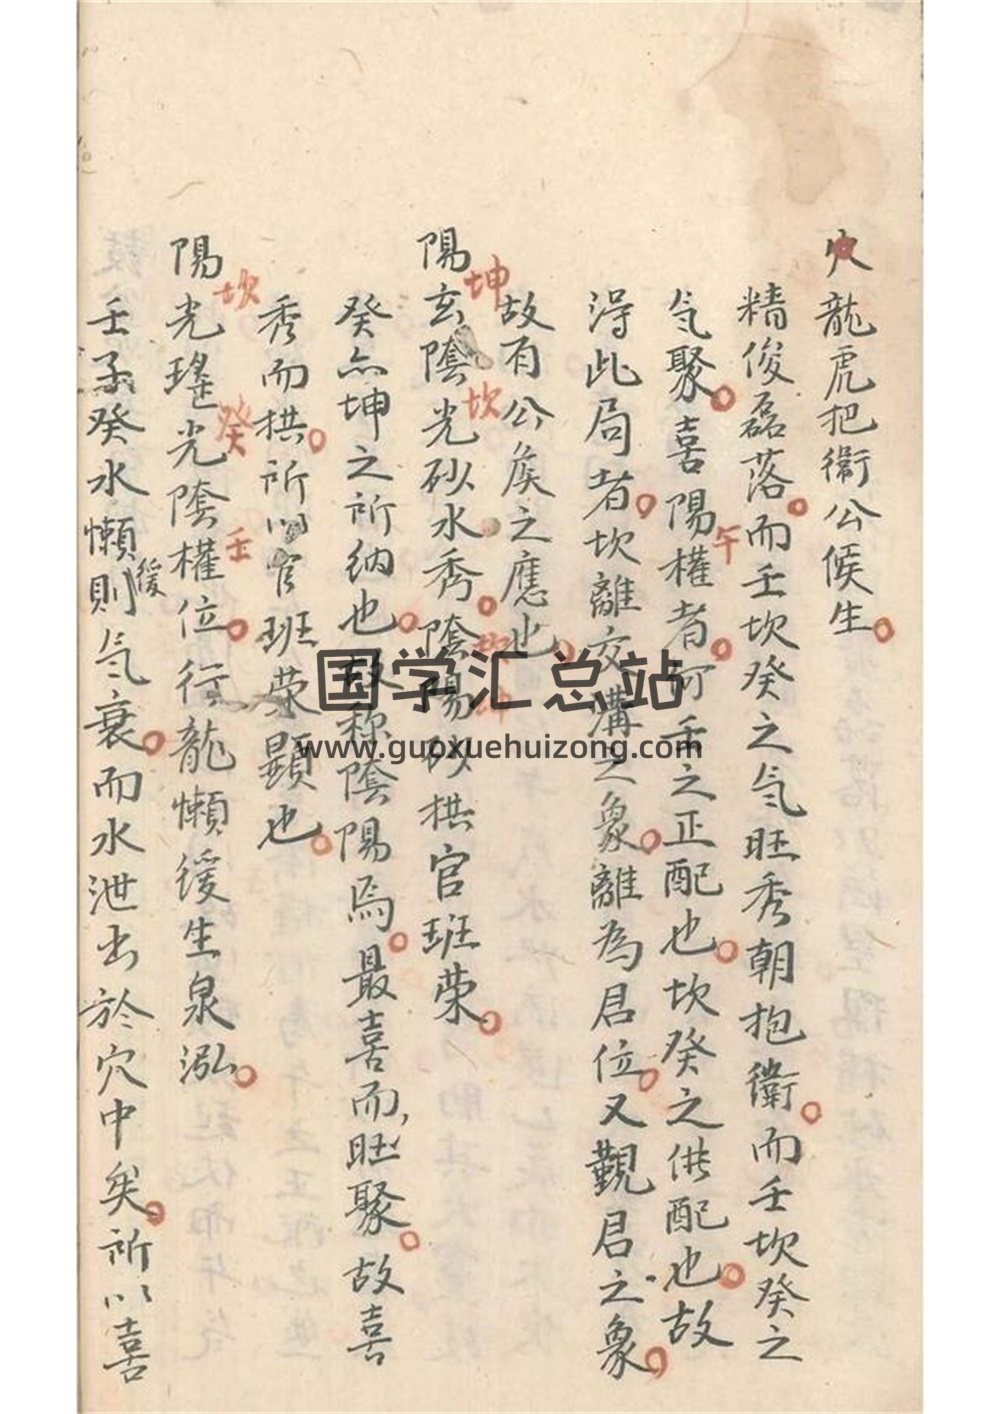 穴龍虎把衛公候生
精俊磊落而壬坎癸之气旺秀朝抱衛而壬坎癸之
气聚喜陽權者何壬之正配也坎癸之供配也故
午
淂此局者坎離交溝之象離為君位又觀君之象
故有公矦之應也
陽玄陰光砂水秀陰陽砂拱官班荣
坤
坎
坎坤
癸亦坤之所納也故称陰陽焉最喜而旺聚故喜
秀而拱所以官班荣顯也
陽光瑤光陰權位行龍懶緩生泉泓
坎
癸
壬
壬子癸水懶則气衰而水泄出於穴中矣所以喜
緩
国学汇总站
www.guoxuehuizong.com